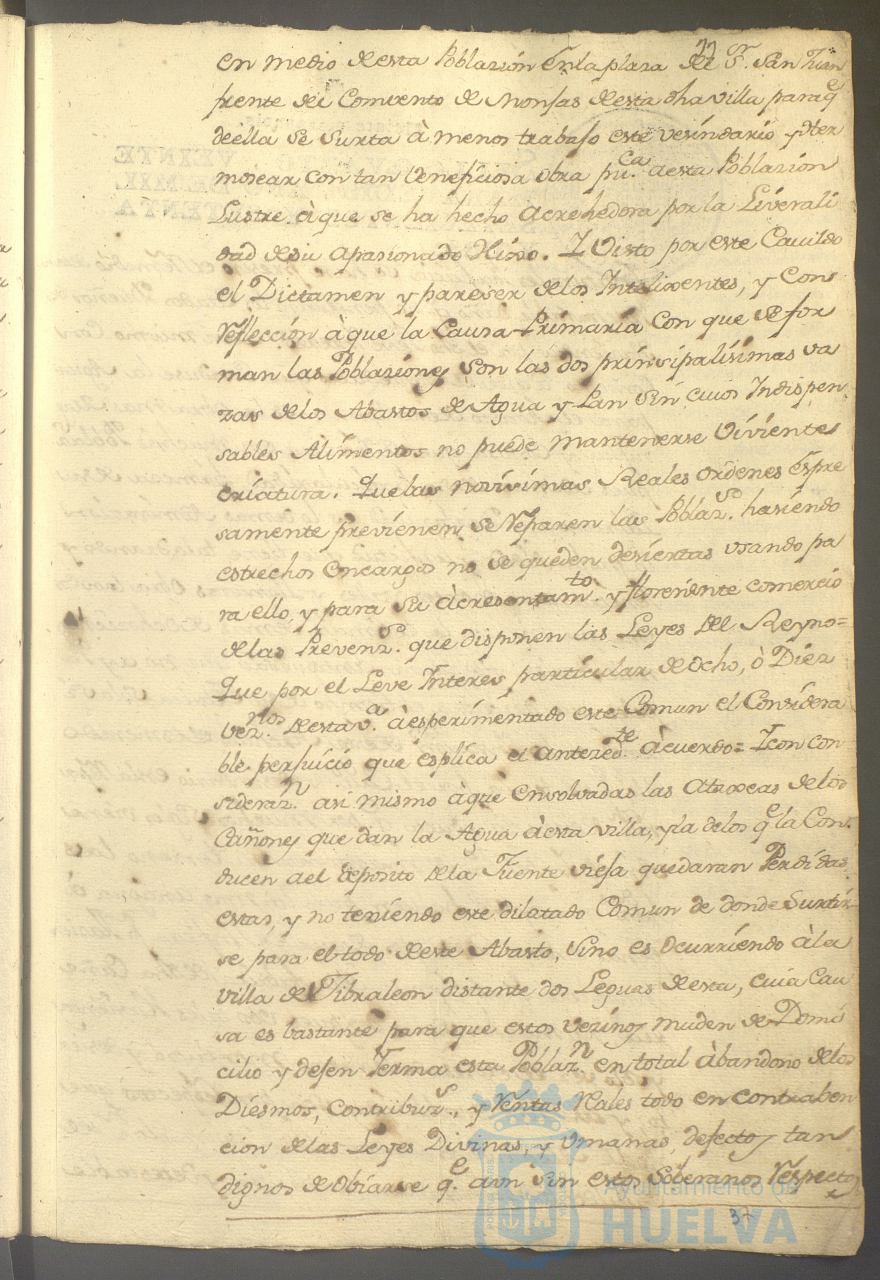 22
en medio desta Poblazion en la plaza del Sr. San Juan
frente del Comvento de Monjas desta dha villa para qe
de ella se surta à menos trabajo este vesindario y der
mosear con tan beneficiosa obra puca. a esta Poblazion
Lustre à que se ha hecho acrehedora por la Liverali
dad de su apasionado Hijo. Y Visto por este Cavildo
el Dictamen y pareser de los Intelixentes, y Con
reflección à que la Causa Primaria con que se for
man las Poblaziones son las dos prinsipalisimas va
zas de los Abastos de Agua y Pan sin cuios Indispen
sables Alimentos no puede mantenerse Viviente
criatura. Que las novisimas Reales ordenes espre
samente previenen se reparen las Poblazs. hasiendo
estrechos encargos no se queden desiertas usando pa
ra ello, y para su àcresentamto. y floresiente comercio
de las Prevenzs. que disponen las Leyes del Reyno=
Que por el Leve Interes particular de ocho, ò Diez
vezinos desta va. à esperimentado este Comun el Considera
ble perjuicio que esplica el anterede. àcuerdo= Y con con
siderazn. asi mismo à que ensolvadas las Ataxeas de los
Cañones que dan la Agua à esta villa, y la de los qe la Con
ducen ael deposito de la Fuente vieja quedaran Perdidas
estas, y no teniendo este dilatado Comun de donde surtir
se para el todo deste Abasto, sino es ocurriendo à la
villa de Jibraleon distante dos Leguas desta, cuia Cau
sa es bastante para que estos vezinos muden de Domi
cilio y dejen Yerma esta Poblazn. en total àbandono de los
Diesmos, Contribuzs., y Rentas Reales todo en contraben
cion de las Leyes Divinas, y Umanas, defectos tan
dignos de obiarse qe. aun sin estos soberanos respectos
37
Ayuntamiento de
HUELVA